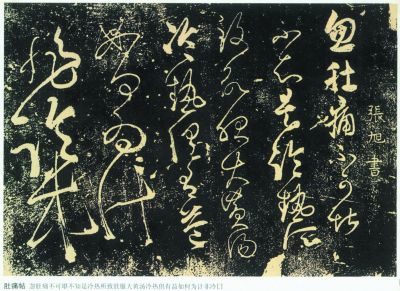 張旭書
忽肚痛不可堪
不知是冷熱所
致欲服大黃湯
冷熱俱有益
如何為計
非
肚痛帖 忽肚痛不可堪不知是冷热所致欲服大黄汤冷热俱有益如何为计非冷口